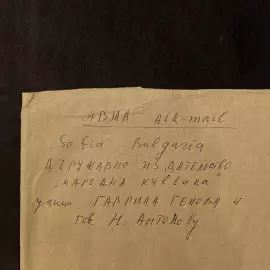 АВИА AIR-mail
Sofia Bulgaria
ДЪРЖАВНО ИЗДАТЕЛСТВО
„НАРОДНА КУЛТУРА"
улица ГАВРИЛА ГЕНОВА 4
тов. Н. АНТОНОВУ